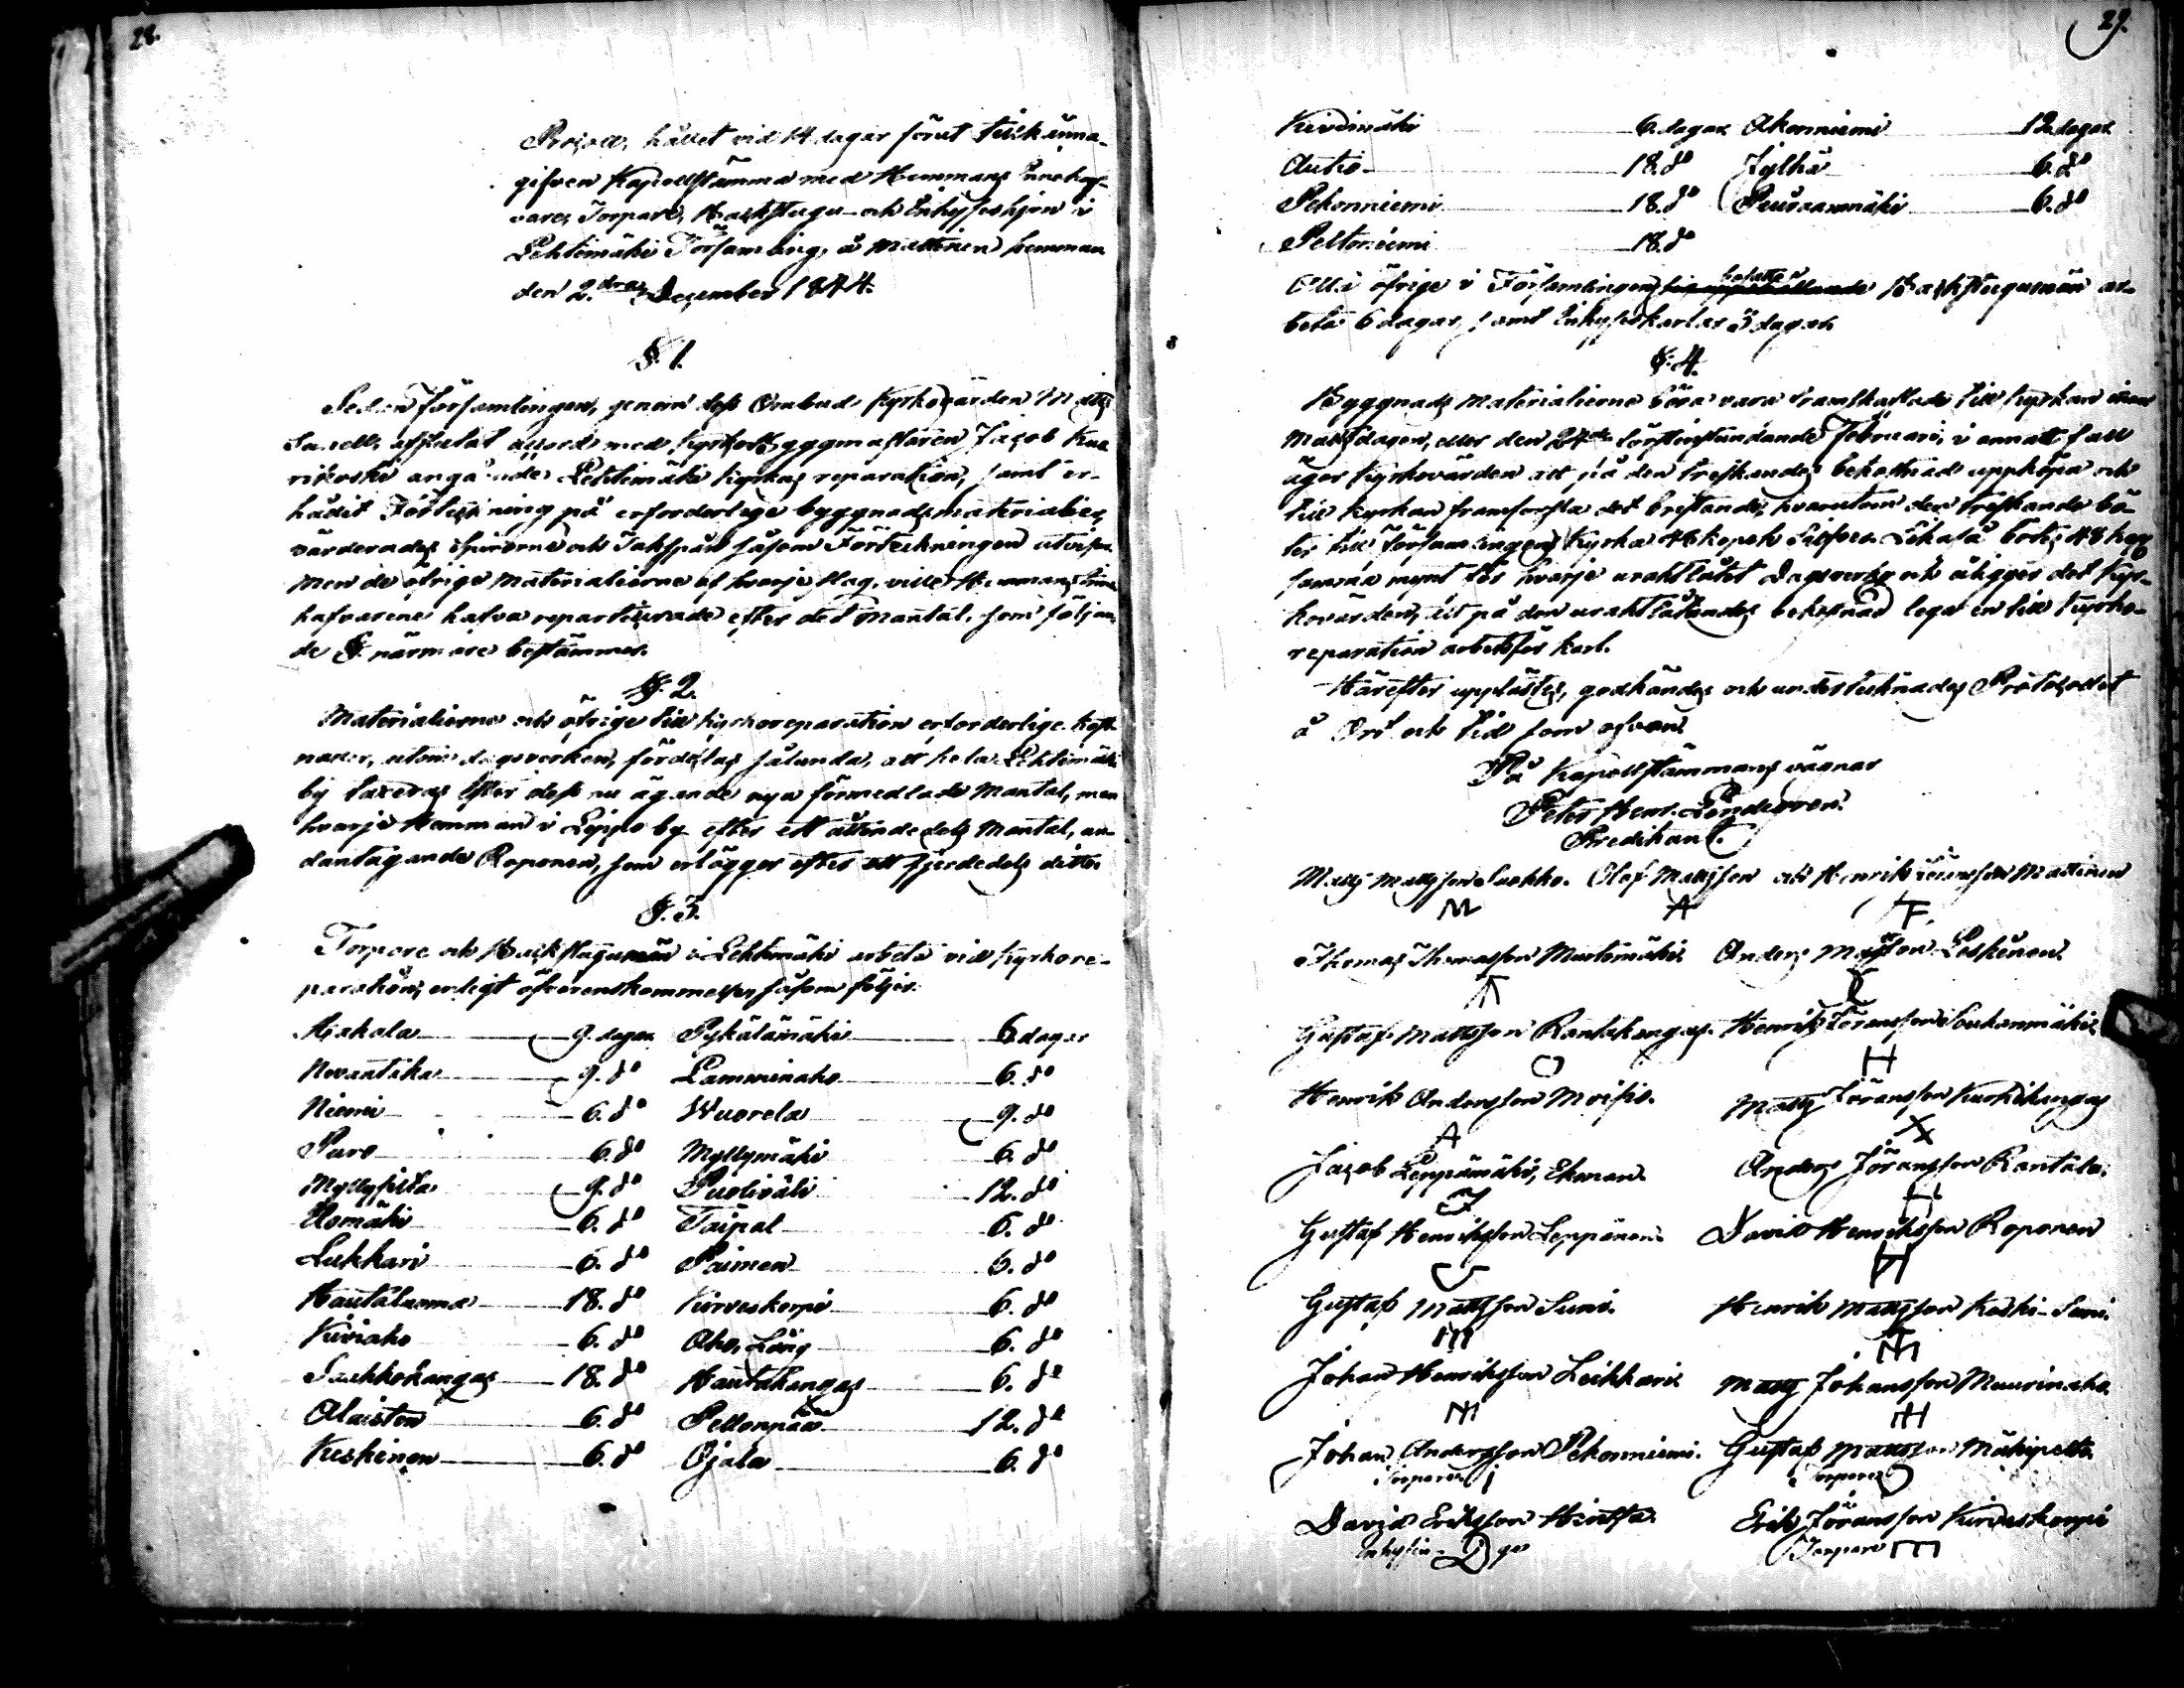 28.
Protocoll, hållet vid 14 dagar förut tillkänna-
gifven Kapellstämma med Hemmans Innehaf-
vare, Torpare, Backstugu- och Inhyseshjon i
Lehtimäki Församling, å Mattinen hemman
den 2:dra December 1844.
§ 1.
Sedan Församlingen, genom dess Ombud Kyrkovärden Matts
afslutat accord med Kyrkobyggmästaren Jacob Kuo
rikoski angående Lehtimäki Kyrkas reparation, samt er-
hållit Förteckning på erforderlige byggnadsmaterialier,
värderades och Takspån såsom Förteckningen utvisar
men de öfrige Materialierne af hvarje slag, ville Hemmans Inne
hafvarene hafva reparterade efter det Mantal, som följan
de §. närmare bestämmer.
§. 2.
Materialierne och öfrige till kyrkoreparation erforderlige kost-
nader, utom dagsverken, fördelas sålunda, att hela Lehtimäki
by taxeras efter dess nu ägande nya förmedlade Mantal, men
hvarje Hemman i Leppo by efter ett åttondedels Mantal, un-
dantagande Roponen, som erlägger efter ett fjerdedels ditto
§. 3.
Torpare och Backstugumän i Lehtimäki arbeta vid Kyrkore-
paration, enligt öfverenskommelse, såsom följer:
Ajakola 9. dagar Pykälämäki 6 dagar
9. do Lamminaho 6. do
Niemi 6. do Wuorela 9. do
Puro 6. do Myllymäki 6. do
9. do Puoliväli 12. do
6. do Taipal 6. do
Lukkari 6. do Paimen 6. do
Hautaluoma 18. do Kirveskorpi 6. do
Kiviaho 6. do Aho, Lång 6. do
Saukkokangas 18. do Hautakangas 6. do
6. do Peltonpää 12. do
Keskinen 6. do Ojala 6. do
29.
Kivimäki 6. dagar Akonniemi 12 dagar
Autio 18. do Jylhä 6. do
Pekonniemi 18. do 6. do
Peltoniemi 18. do
Alla öfrige i Församlingen befintl Backstugumän ar-
beta 6 dagar, samt Inhyseskarlar 3 dagar
§. 4.
Byggnads Materialierne böra vara framskaffade till kyrkan innan
Mattsdagen, eller den 24de förstinstundande Februari, i annat fall
äger Kyrkovärden att på den treskandes bekostnad uppköpa och
till kyrkan framforsla det bristande, hvarutom den treskande bö
ter till Församlingens Kyrka 48 kopek Silfver. Likaså böte 48 kop
samma mynt för hvarje uraktlåtet Dagsverke och åligger det Kyr-
kovärden, att på den uraktlåtandes bekostnad lega en till kyrko-
reparation arbetsför karl.
Härefter upplästes, godkändes och undertecknades Protocollet
å Ort och tid som ofvan
På Kapellstämmans vägnar
Peter Henr. Lindegren
Predikant.
Matts Mattsson Suokko. Olof Mattsson och Henrik Göransson Mattinen
M A F
Thomas Thomasson Murtomäki Anders Mattsson Leskinen
Gustaf Mattsson Rantakangas. Henrik Göransson Soukonmäki
H
Henrik Andersson Moisio. Matts Göransson Kurkikangas
A X
Jacob Leppämäki, Ekman. Anders Göransson Rantala.
Gustaf Henriksson Leppänen David Henriksson Roponen
Gustaf Mattsson Suni. Henrik Mattsson Koski-Suni.
Johan Henriksson Leikkari Matts Johansson Muurinaho
Johan Andersson Pekonniemi. Gustaf Mattsson Mäkipelto
Torpare Torpare
David Eriksson Hintsa Erik Göransson Kirveskorpi
Inhysing Torpare